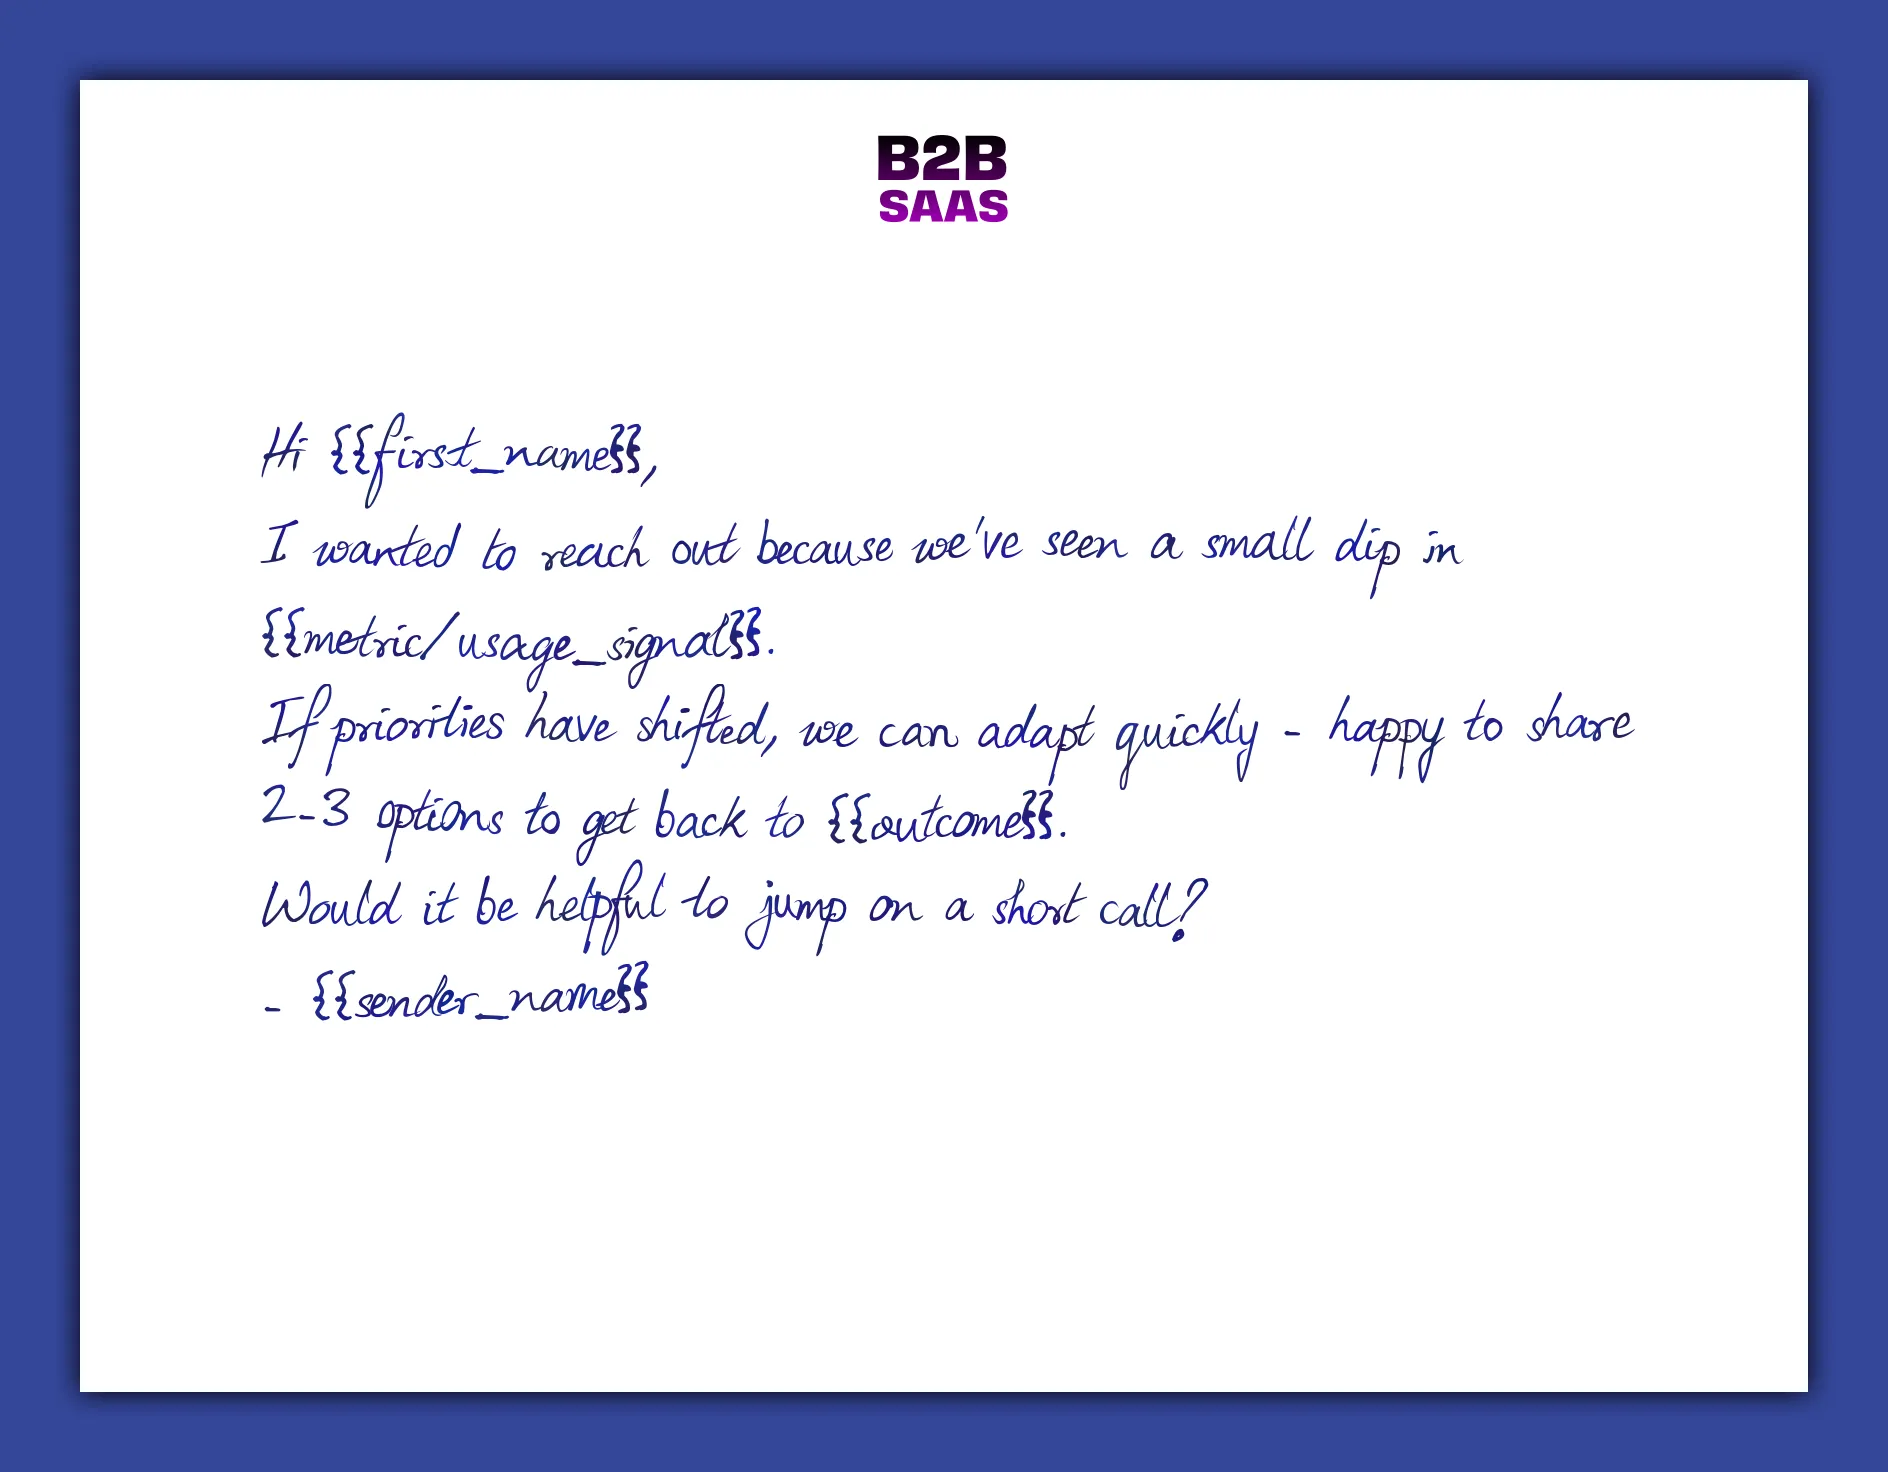 B2B
SAAS
Hi {{first_name}},
I wanted to reach out because we've seen a small dip in
{{metric/usage_signal}}.
If priorities have shifted, we can adapt quickly - happy to share
2-3 options to get back to {{outcome}}.
Would it be helpful to jump on a short call?
- {{sender_name}}